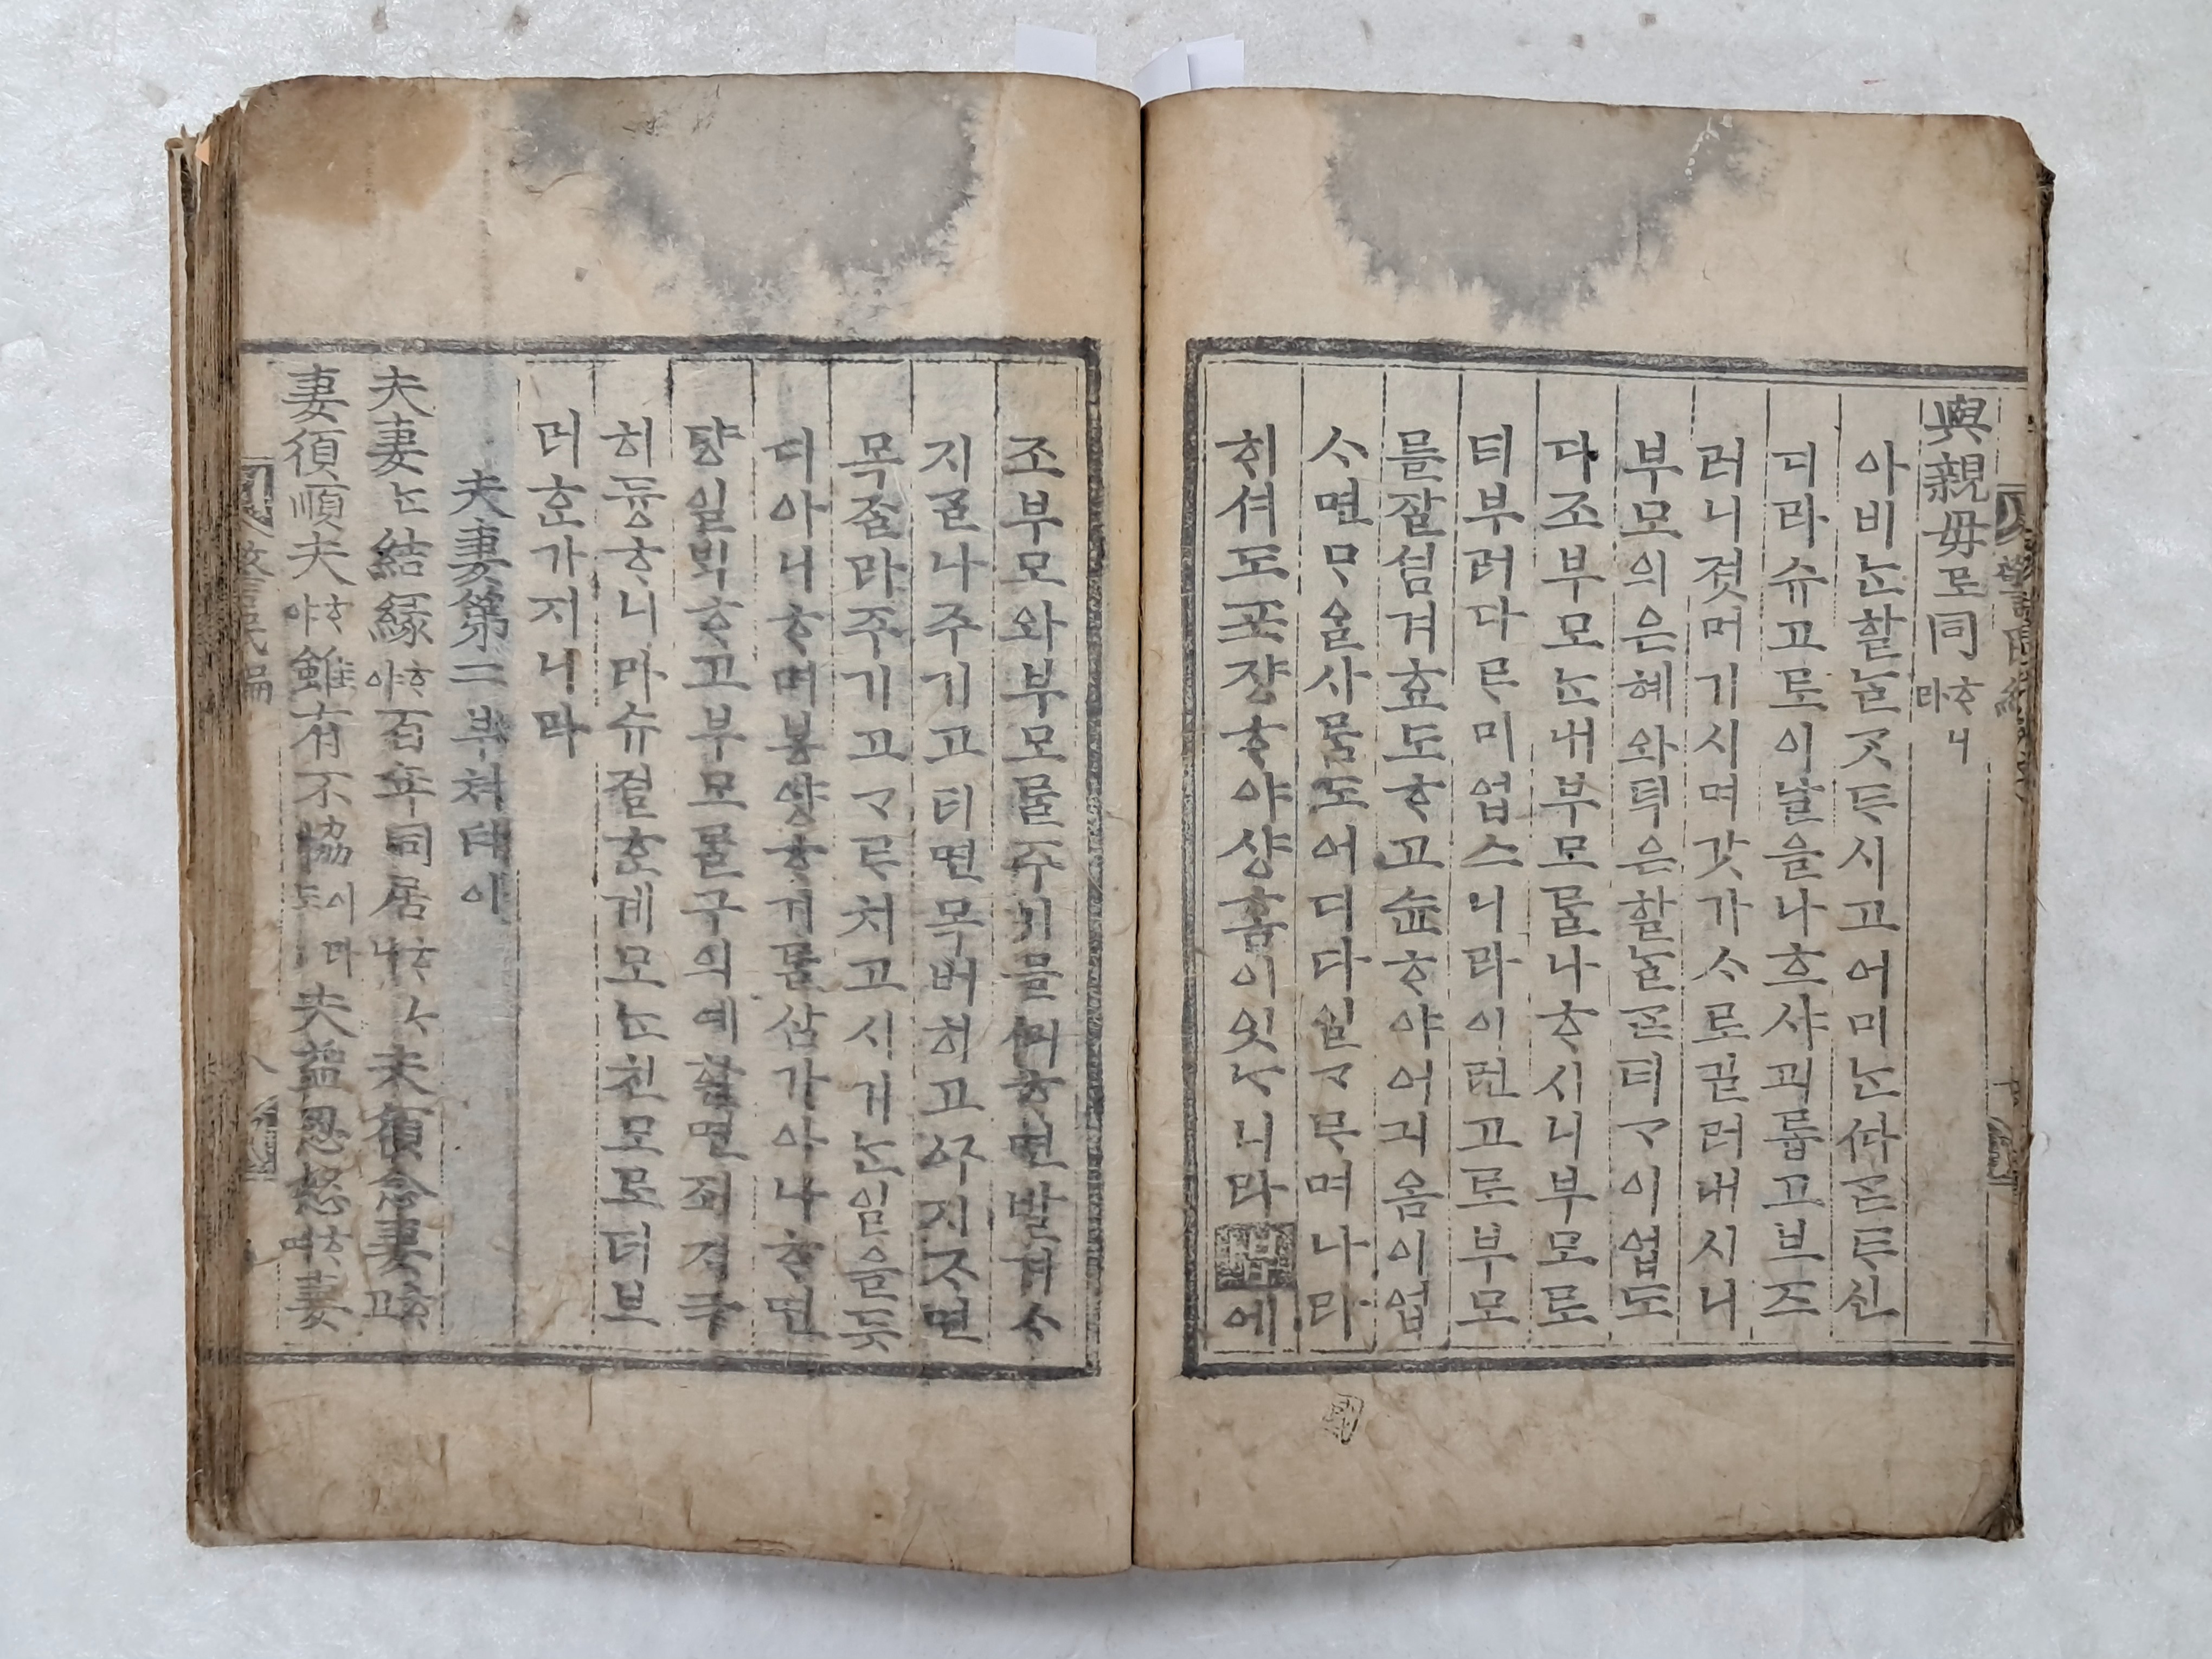 與親母로同ᄒᆞ니라
아비ᄂᆞᆫ할ᄂᆞᆯᄀᆞᆺᄐᆞ시고어미ᄂᆞᆫᄯᅡᄀᆞᆮᄐᆞ신
디라슈고로이날을나ᄒᆞ샤괴롭고브즈
러니졋머기시며갓가ᄉᆞ로길러내시니
부모의은혜와틱은할ᄂᆞᆯᄀᆞᆮ티ᄀᆞ이업도
다조부모ᄂᆞᆫ내부모ᄅᆞᆯ나ᄒᆞ시니부모로
티부러다ᄅᆞ미업스니라이런고로부모
를잘셤겨효도ᄒᆞ고슌ᄒᆞ야어긔옴이업
ᄉᆞ면ᄆᆞᄋᆞᆯ사ᄅᆞᆷ도어디다닐ᄀᆞᄅᆞ며나라
히셔도포쟝ᄒᆞ야샹홈이잇ᄂᆞ니라법에
조부모와부모ᄅᆞᆯ주기믈ᄭᅬᄒᆞ면발겨ᄉᆞ
지ᄅᆞᆯ나주기고티면목버히고ᄭᅮ지ᄌᆞ면
목졸라주기고ᄀᆞᄅᆞ쳐고시기ᄂᆞᆫ일을듯
디아니ᄒᆞ며봉양ᄒᆞ기ᄅᆞᆯ삼가아니ᄒᆞ면
댱일ᄇᆡᆨᄒᆞ고부모ᄅᆞᆯ구의예할면죄지극
히듕ᄒᆞ니라슈절ᄒᆞᆫ계모ᄂᆞᆫ친모로더브
러ᄒᆞᆫ가지니라
夫妻第二부쳐댜이
夫妻ᄂᆞᆫ結緣ᄒᆞ야百年同居ᄒᆞᄂᆞ니夫須念妻ᄒᆞ고
妻須順夫ᄒᆞ야雖有不協이라도夫益忍怒ᄒᆞ며妻
警民編